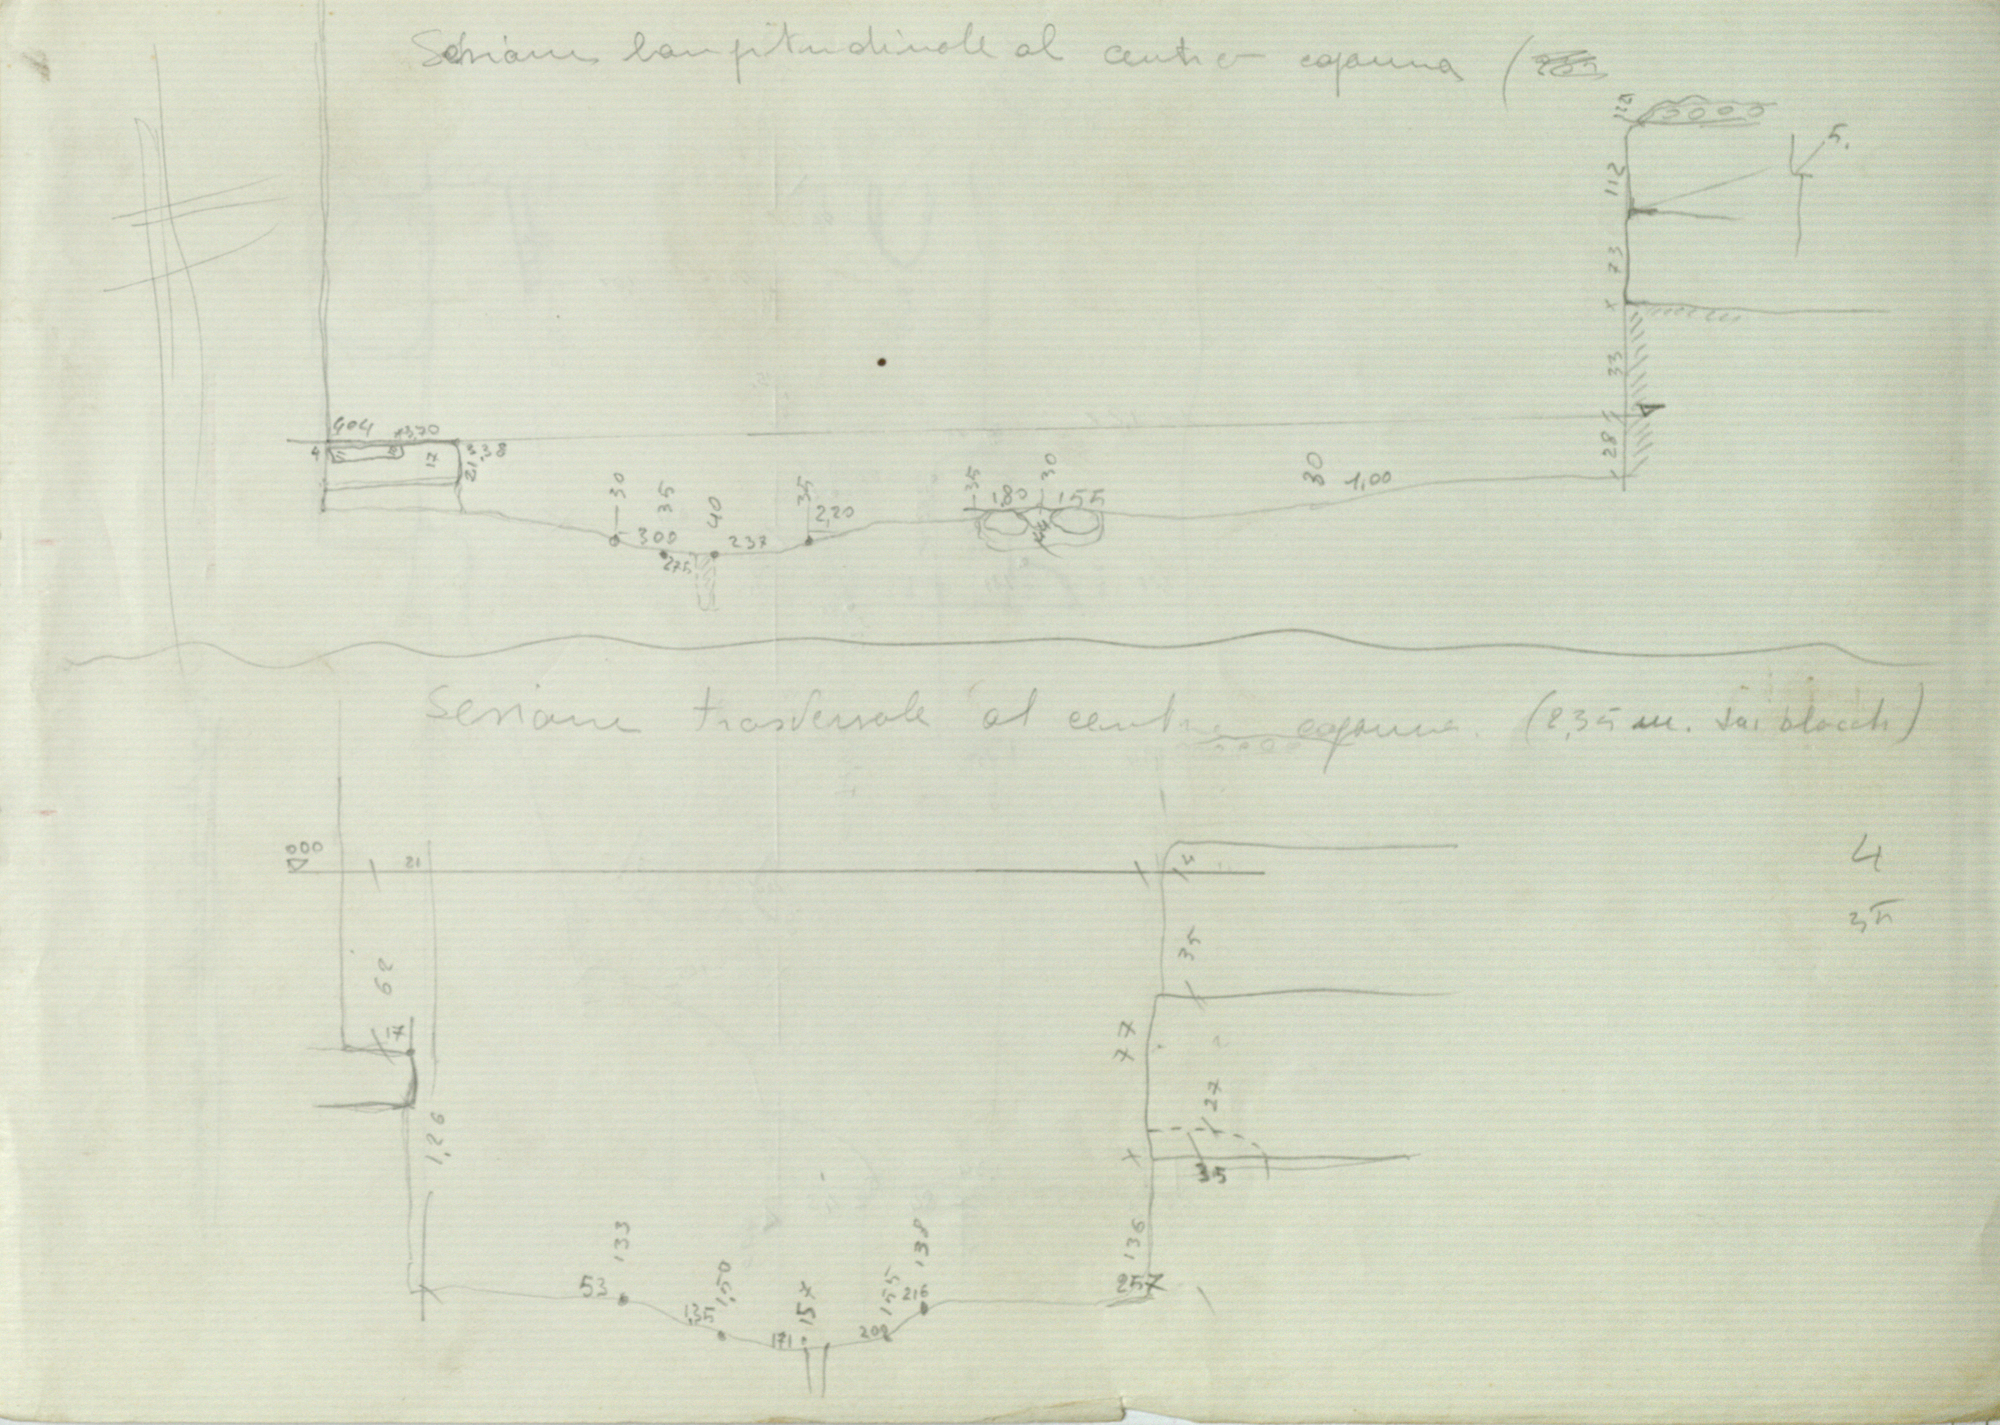 Sezione longitudinale al centro capanna (
112
5.
73
33
28
404
3,70
4
17
3,38
21
30
35
40
35
2,20
300
275
237
35
30
180
155
30
1,00
Sezione trasversale al centro capanna. (2,35 m. dai blocchi)
000
21
14
4
35
35
62
17
77
27
35
1,26
136
133
53
1,50
135
157
171
155
202
138
216
257